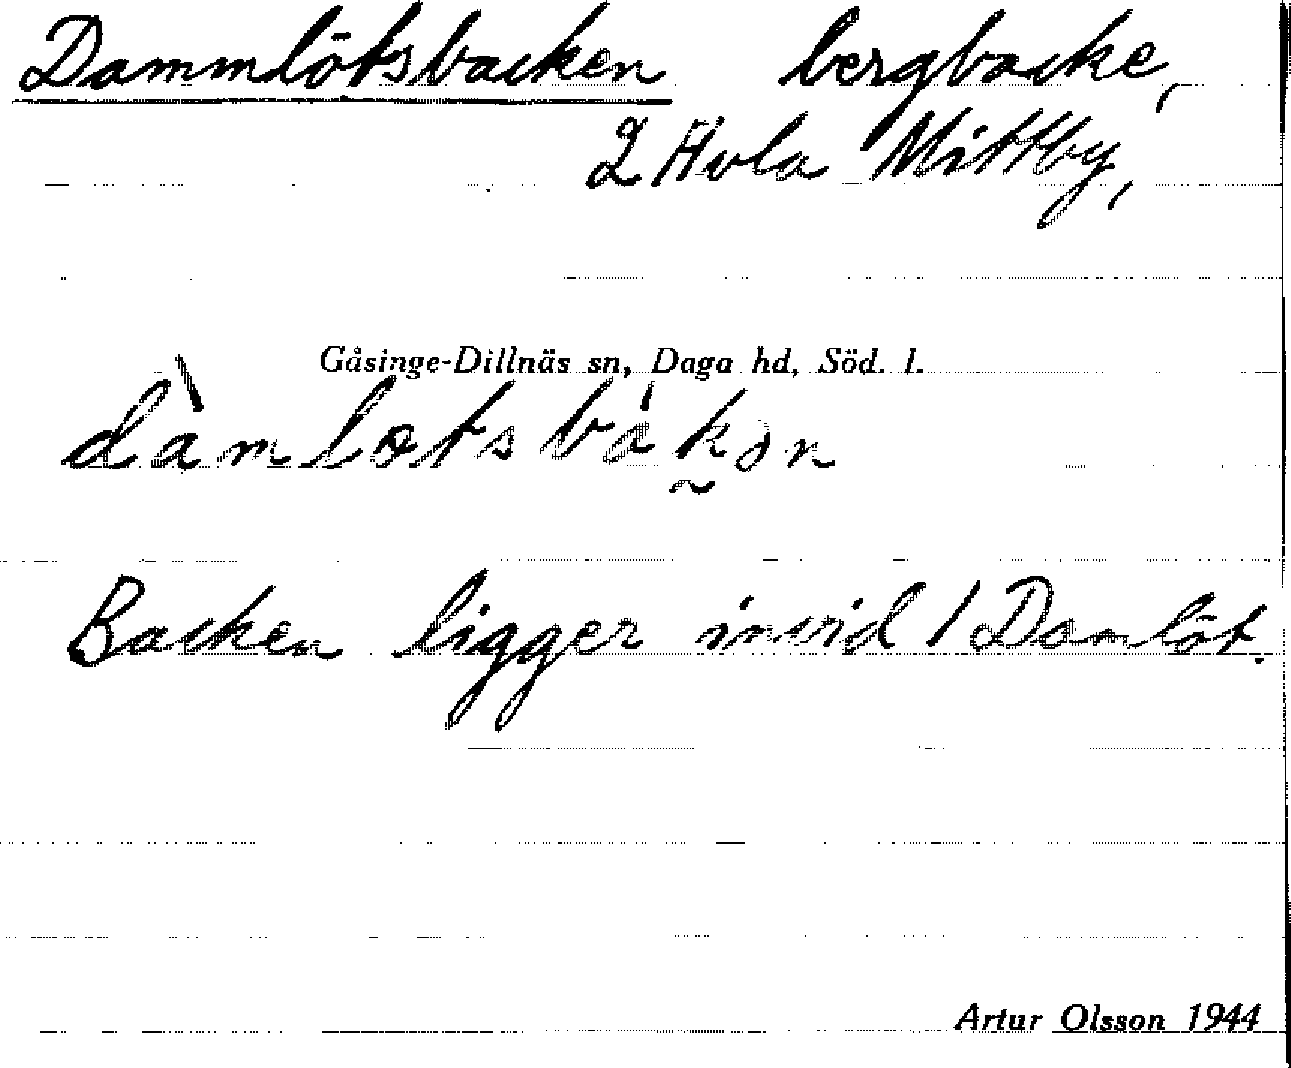 Dammlötsbacken bergbacke,
2 Hvla Mittby,
Gåsinge-Dillnäs sn, Daga hd, Söd. l.
dàmlötsbákən
Backen ligger invid 1 Damlöt.
Artur Olsson 1944